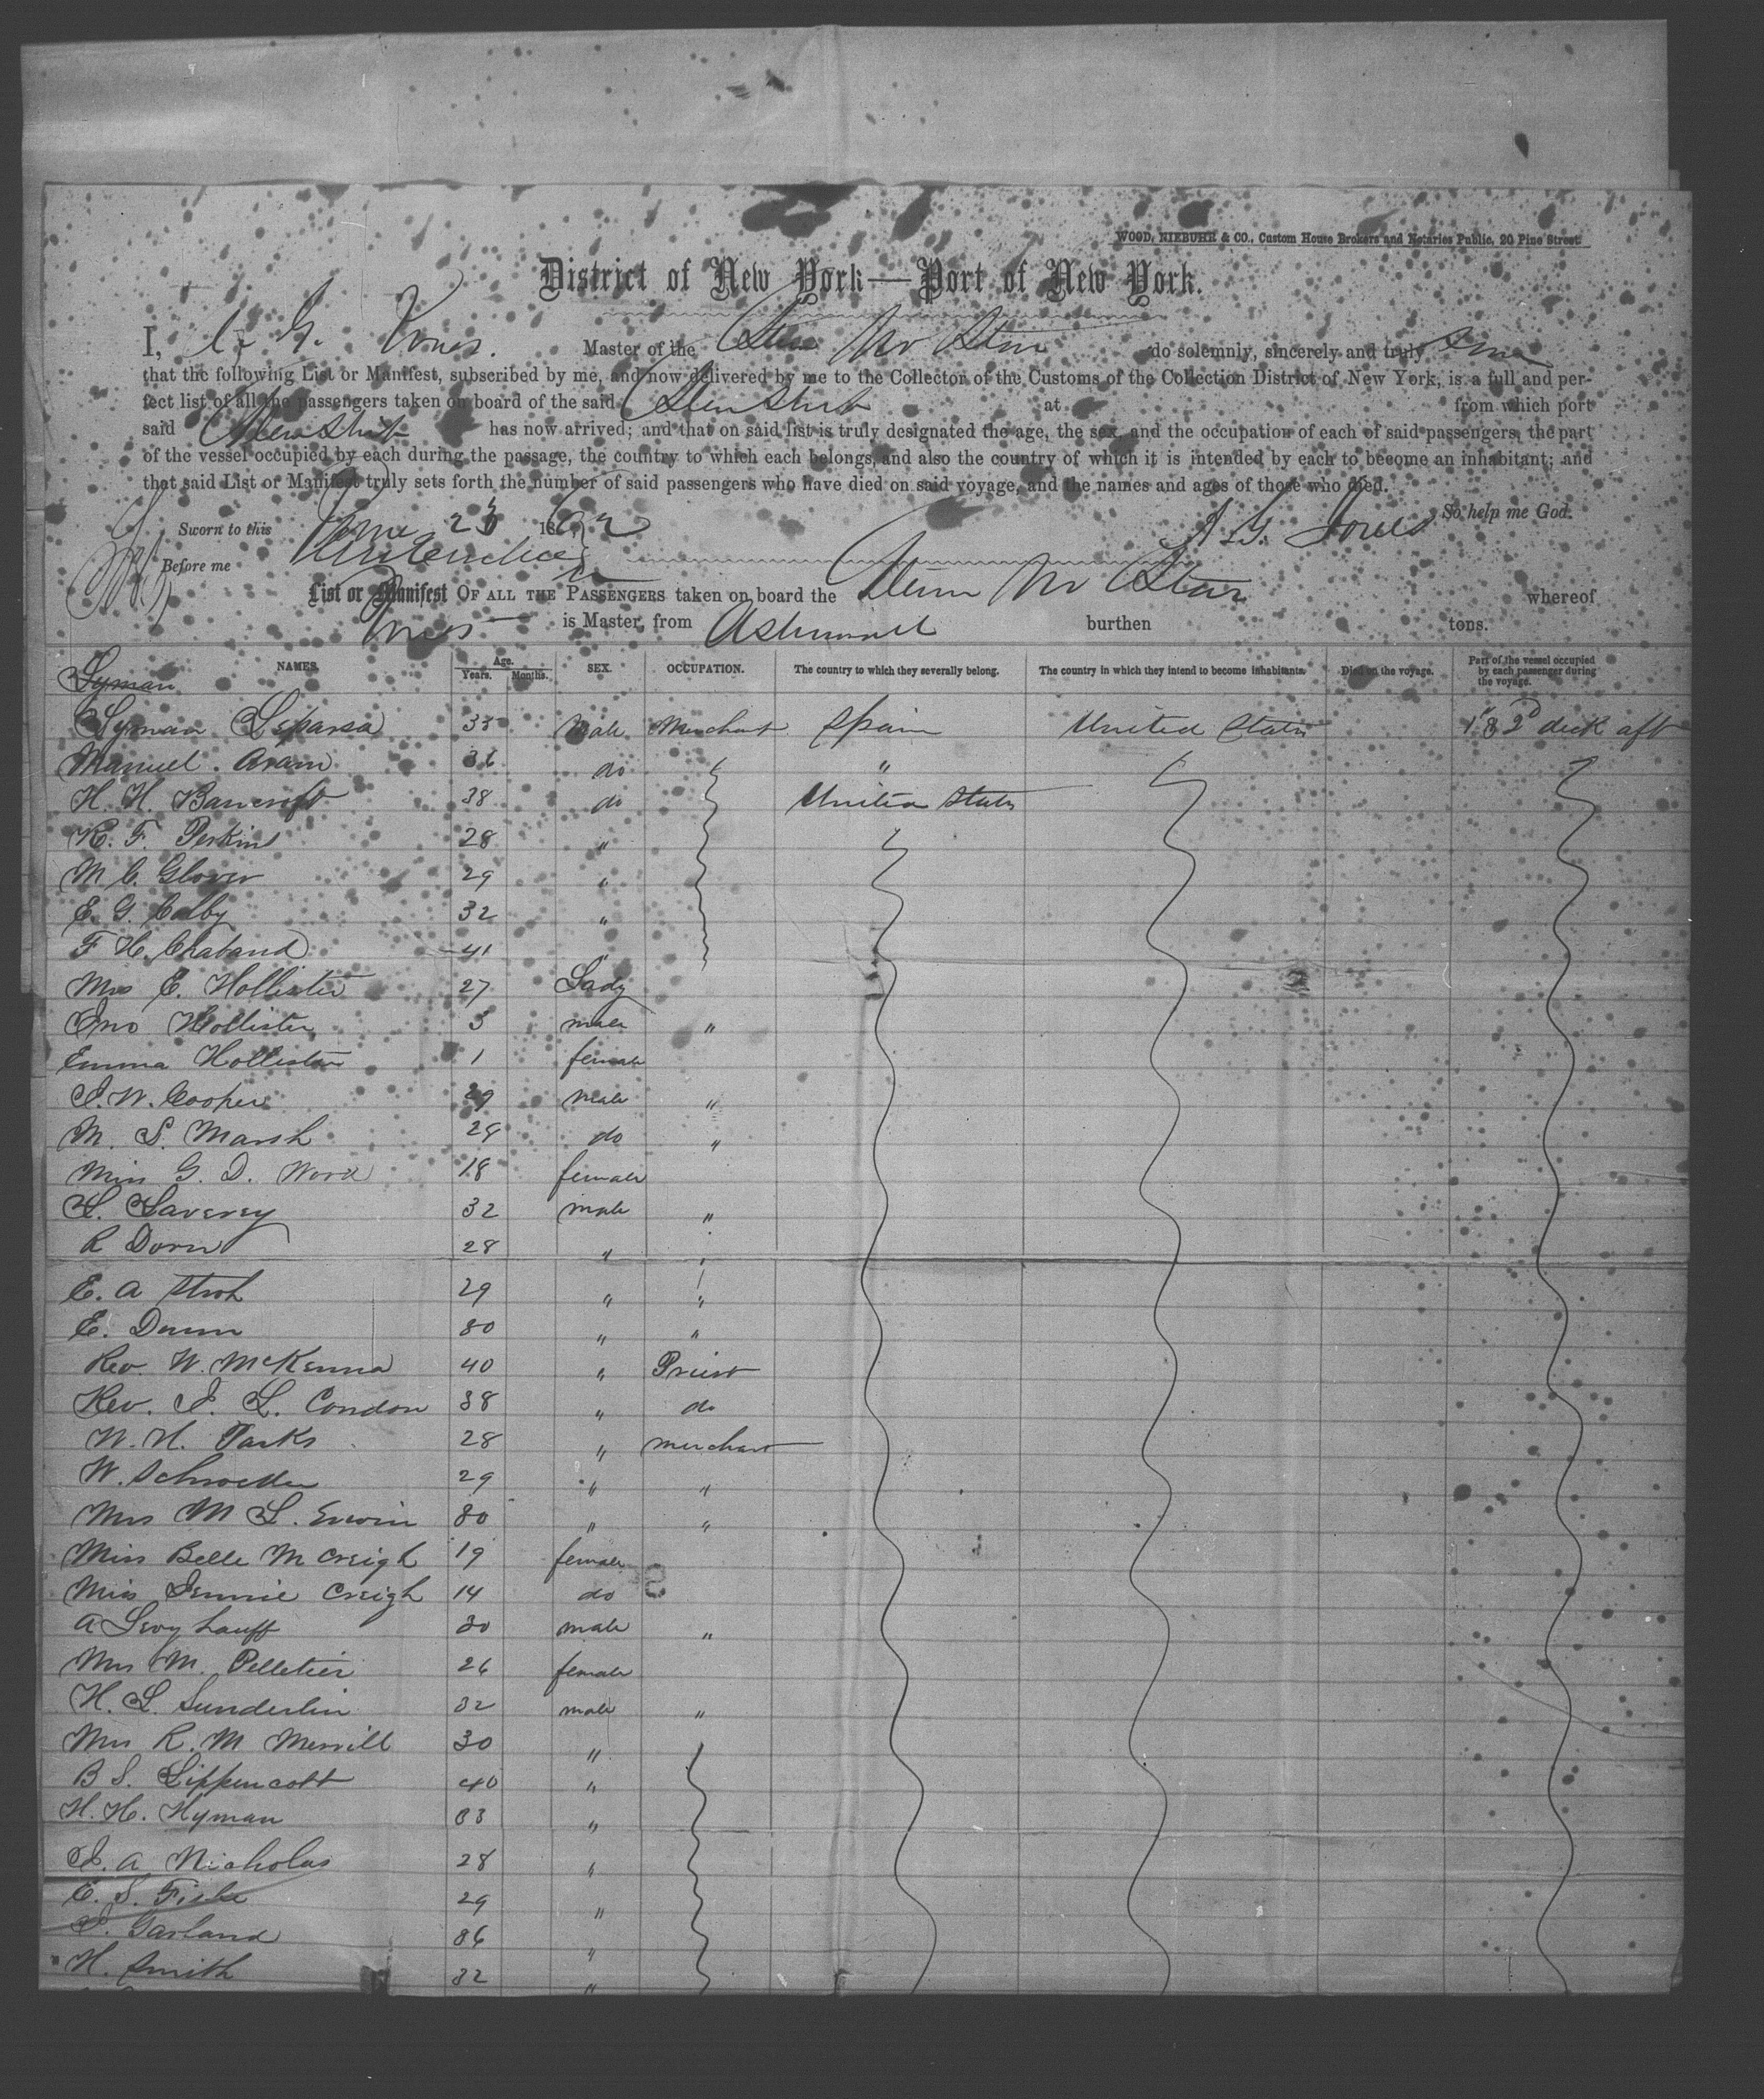 WOOD, NIEBUHR & CO., Custom House Brokers and Notaries Public, 20 Pine Street
District of New York—Port of New York.
I, A. G. Jones. Master of the Stmr No Star do solemnly, sincerely and truly
that the following List or Manifest, subscribed by me, and now delivered by me to the Collector of the Customs of the Collection District of New York, is a full and per-
fect list of all the passengers taken on board of the said Steamship at from which port
said Steamship has now arrived; and that on said list is truly designated the age, the sex, and the occupation of each of said passengers, the part
of the vessel occupied by each during the passage, the country to which each belongs, and also the country of which it is intended by each to become an inhabitant; and
that said List or Manifest truly sets forth the number of said passengers who have died on said voyage, and the names and ages of those who died.
So help me God.
Sworn to this June 23 1862 A. G. Jones
Before me
List or Manifest OF ALL THE PASSENGERS taken on board the No Star whereof
Jones is Master, from Aspinwall burthen tons.
NAMES. Age. Years. Months. SEX. OCCUPATION. The country to which they severally belong. The country in which they intend to become inhabitants. Died on the voyage. Part of the vessel occupied by each passenger during the voyage.
Lyman
Lyman 33 Male Merchant Spain United States 1 & 2d deck aft
Manuel Aram 36 do "
H. H. Bancroft 38 do United States
R. F. Perkins 28 "
M C. Glover 29 "
E. G. Colby 32 "
F H. Chaband 41 "
Mrs E. Hollister 27 Lady
Jno Hollister 3 male "
Emma Hollister 1 female
J. W. Cooper 29 male "
M. S. Marsh 28 do "
Miss G. D. Wood 18 female
L. Laverey 32 male "
R Dorn 28 " "
E. A Stroh 29 " "
E. Dunn 30 " "
Rev. W. McKenna 40 " Priest
Rev. J. L. Condon 38 " do
W. H. Parks 28 " merchant
W. Schroeder 29 " "
Mrs M L. Erwin 30 " "
Miss Belle M Creigh 19 female
Miss Jennie Creigh 14 do
A Levy 30 male "
Mrs M. Pelletier 26 female
H. L. Sunderlin 32 male "
Mrs R. M Merrill 30 "
B S. Lippencott 40 "
H. H. Hyman 33 "
J. A. Nicholas 28 "
E. S. Fiske 29 "
J. Garland 36 "
H. Smith 32 "